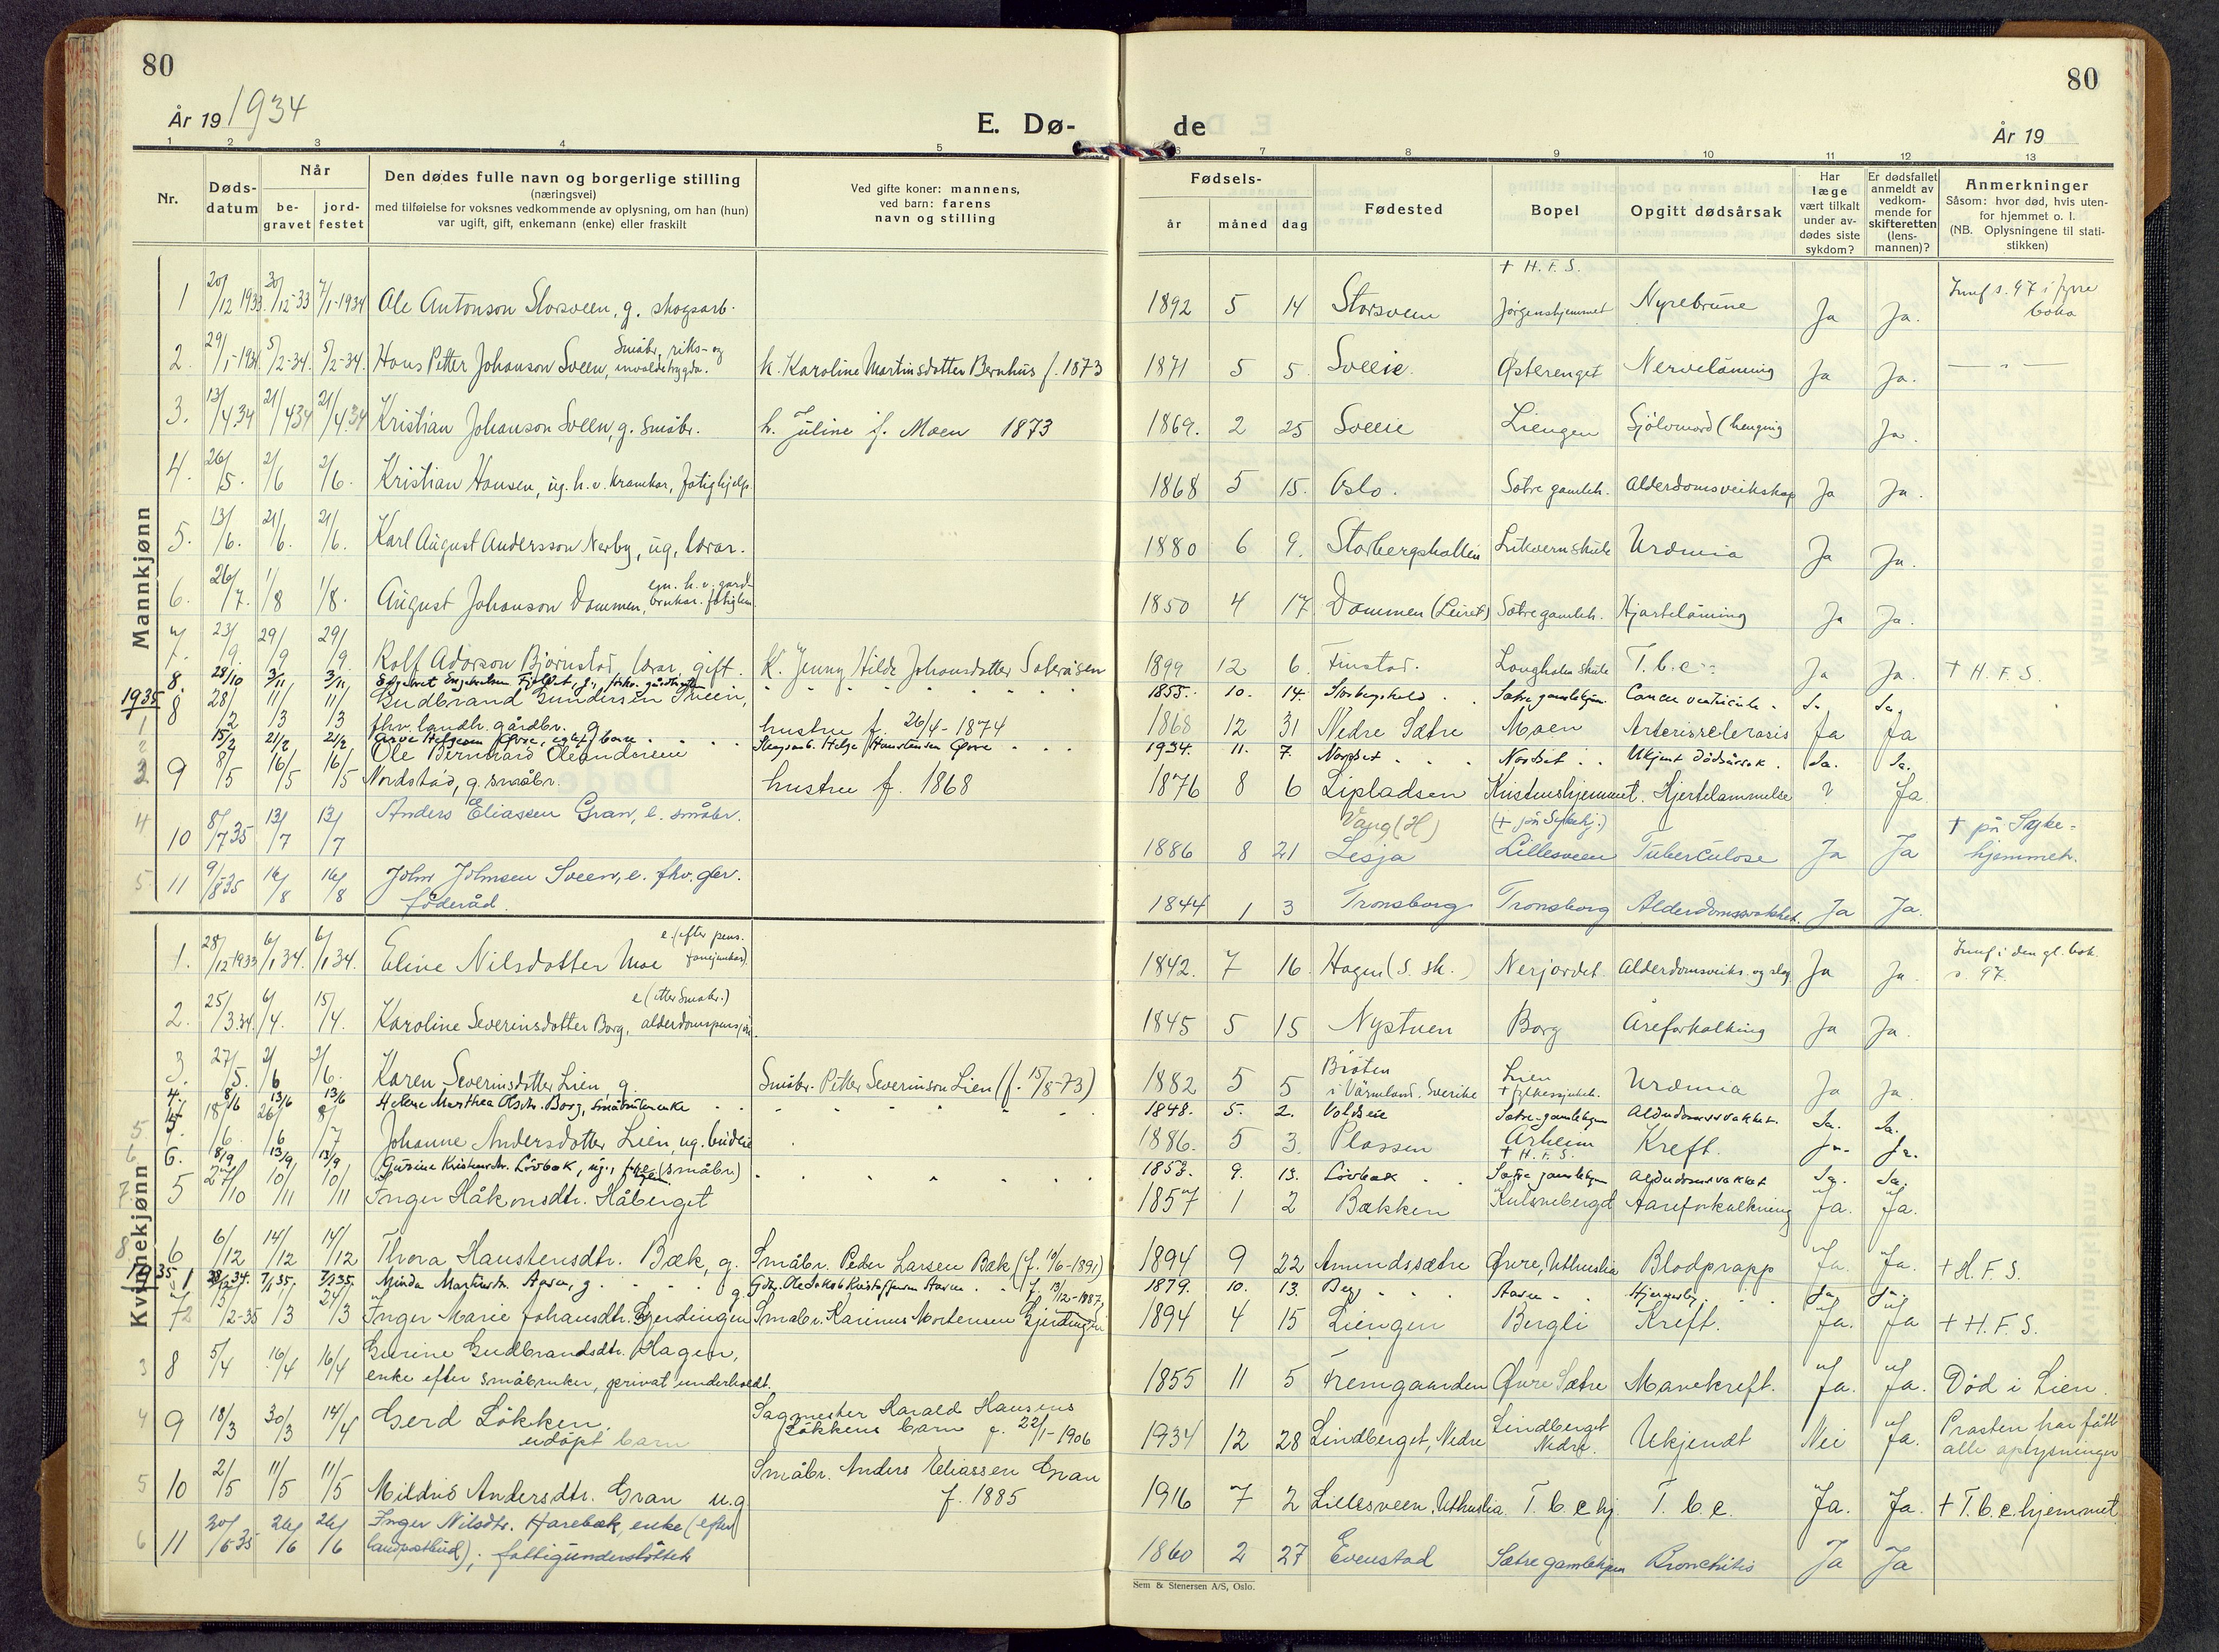 80
80
År 19 1934
E. Dø-
de
År 19
1 2 3 4 5 6 7 8 9 10 11 12 13
Nr.
Døds-
datum
Når
be-
gravet
jord-
festet
Den dødes fulle navn og borgerlige stilling
(næringsvei)
med tilføielse for voksnes vedkommende av oplysning, om han (hun)
var ugift, gift, enkemann (enke) eller fraskilt
Ved gifte koner: mannens,
ved barn: farens
navn og stilling
Fødsels-
år
måned
dag
Fødested
Bopel
Opgitt dødsårsak
Har
læge
vært tilkalt
under av-
dødes siste
sykdom?
Er dødsfallet
anmeldt av
vedkom-
mende for
skifteretten
(lens-
mannen)?
Anmerkninger
Såsom: hvor død, hvis uten-
for hjemmet o. l.
(NB. Oplysningene til stati-
stikken)
Mannkjønn
1 20/12 1933 30/12-33 7/1-1934 Ole Antonson Storsveen, g. skogsarb. 1892 5 14 Storsveen + H.F.S. Jørgenshjemmet Nyrebrune Ja Ja. s. 97 i boka
2. 29/1-1934 5/2-34. 5/2-34. Hans Petter Johanson Sveen, Småbr, riks- og k. Karoline Martinsdotter Bernhus f. 1873 1871 5 5. Sveen. Østerenget Nervelåming Ja Ja. — " —
3. 13/4.34 21/4 34 21/4.34 Kristian Johanson Sveen, g. småbr. h. Juline f. Moen 1873 1869. 2 25 Sveen Liengen Sjølvmord (henging Ja.
4. 26/5. 2/6 2/6. Kristian Hansen, ug. h.v. kramkar, fatighjelp. 1868 5 15. Oslo. Sætre gamleh. Alderdomsveikskap Ja Ja.
5. 13/6. 21/6. 21/6. Karl August Andersson Nerby, ug, lærar. 1880 6 9. Storbergshallen skule Urdmia Ja Ja.
6. 26/7. 1/8 1/8. August Johanson Dammen, 1850 4 17 Dammen (Leiret) Sætre gamleh. Hjartelåming Ja Ja.
7. 23/9. 29/9 29/9. Rolf Adorson Bjørnstad, lærar, gift. K. Jenny Hilde Johansdotter Sæteråsen 1899 12 6. Finstad. Langholen skule T.b.c. Ja Ja. + H.F.S.
8. 28/10 3/11 3/11 Engebretsen g. 1855. 10. 14. Sætre gamlehjem. Cancer ventriculi Ja. Ja.
1935
1 8 28/2 11/3 11/3 Gudbrand Gundersen Treien,
fhv. landh. gårdbr. g. hustru f. 26/4-1874 1868 12 31 Nedre Sætre Moen Arteriosclerosis Ja Ja
2 15/2 21/2 21/2 Arve Helgesen Øvre, Skogsarb. Helge Haustensen Øvre 1934. 11. 7. Nordset Nordset Ukjent dødsårsak. Ja. Ja.
3 9 8/5 16/5 16/5 Ole Bernhard Oleandersen
Nordstad, g. småbr. hustru f. 1868 1876 8 6 Lipladsen Kristenshjemmet. Hjertelammelse ? Ja
4 10 8/7 35 13/7 13/7 Anders Eliassen Gran, e. småbr. 1886 8 21 Vang (H) Lesja (+ på Sykehj.) Lillesveen Tuberculose Ja Ja + på Syke-
hjemmet.
5 11 9/8 35 16/8 16/8 John Johnsen Sveen, e. fhv. gbr.
føderåd. 1844 1 3 Tronsborg Tronsborg Alderdomssvakhet. Ja Ja.
Kvinnekjønn
1. 28/12 1933 6/1 34. 6/1 34. Eline Nilsdotter Moe e. (efter pens. 1842. 7 16. Hagen (S. sk.) Nerjordet. Alderdomsveiks. og slag Ja Ja. i den gl. bok.
s. 97.
2. 25/3.34. 6/4. 15/4. Karoline Severinsdotter Borg, e (etter småbr.) alderdomspensjon. 1845 5 15 Nystuen Borg Åreforkalking Ja Ja.
3. 27/5. 2/6 2/6. Karen Severinsdotter Lien, g. Småbr. Petter Severinson Lien (f. 15/8-73) 1882 5 5 Bråten
i Värmland, Sverike Lien Urdmia Ja Ja.
4. 8/6 13/6 13/6 Helene Marthea Olsdtr. Borg, småbrukerenke 1848. 5. 2. Sætre-gamlehjem Alderdomssvakhet. Ja. Ja.
5 18/6. 26/6 8/7 Johanne Andersdotter Lien, ug. budeie 1886. 5 3. Plassen Årheim
+ H.F.S. Kreft. Ja. Ja.
6. 8/9 13/9 13/9 Gurine Kristensdtr. Lövbæk, ug., (småbr) 1853. 9. 13. Lövbæk Sætre gamlehjem Alderdomssvakhet Ja. Ja.
7. 5 27/10 10/11 10/11 Inger Håkonsdtr. Håberget 1857 1 2 Bækken Kulsneberget Aareforkalkning Ja. Ja.
8 6 6/12 14/12 14/12 Thora Haustensdtr. Bæk, g. Småbr. Peder Larsen Bæk (f. 19/6-1891) 1894 9 22 Amundssætre Øvre, Uthuslia Blodpropp Ja. Ja. + H.F.S.
1935 1 28/12 34. 7/1 35. 7/1 35. Minda Martinsdtr. Aasen, g. Gbr. Ole Jakob Kristoffersen Aasen f. 13/12-1887 1879. 10. 13. Berg Aasen Ja. Ja.
2 13/2-35 /3 24/3 Inger Marie Johansdtr. Gjerdingen Småbr. Karinus Mortensen Gjerdingen 1894 4 15 Liengen Bergli Kreft. Ja. Ja + H.F.S.
3 8 5/4 16/4 16/4 Gurine Gudbrandsdtr. Hagen,
enke efter småbruker, privat underholdt. 1855 11 5 Fremgaarden Øvre Sætre Mavekreft. Ja. Ja. Död i Lien.
4 9 18/3 30/3 14/4 Gerd Lökken,
udöpt barn Sagmester Harald Hansens
Lökkens barn f. 22/1-1906 1934 12 28 Lindberget, Nedre Lindberget
Nedre. Ukjendt Nei Ja. Prosten har fått
alle oplysninger
5 10 2/5 11/5 11/5 Mildrid Andersdtr. Gran u.g. Småbr. Anders Eliassen Gran
f. 1885 1916 7 2 Lillesveen, Uthuslia T.b.c. hj. T.b.c. Ja. Ja. + T.b.c. hjemmet
6 11 20/6 35 26/6 26/6 Inger Nilsdtr. Harebæk, enke (efter
landpostbud); fattigunderstöttet 1860 2 27 Evenstad Sætre gamlehjem Bronchitis Ja Ja
Sem & Stenersen A/S, Oslo.